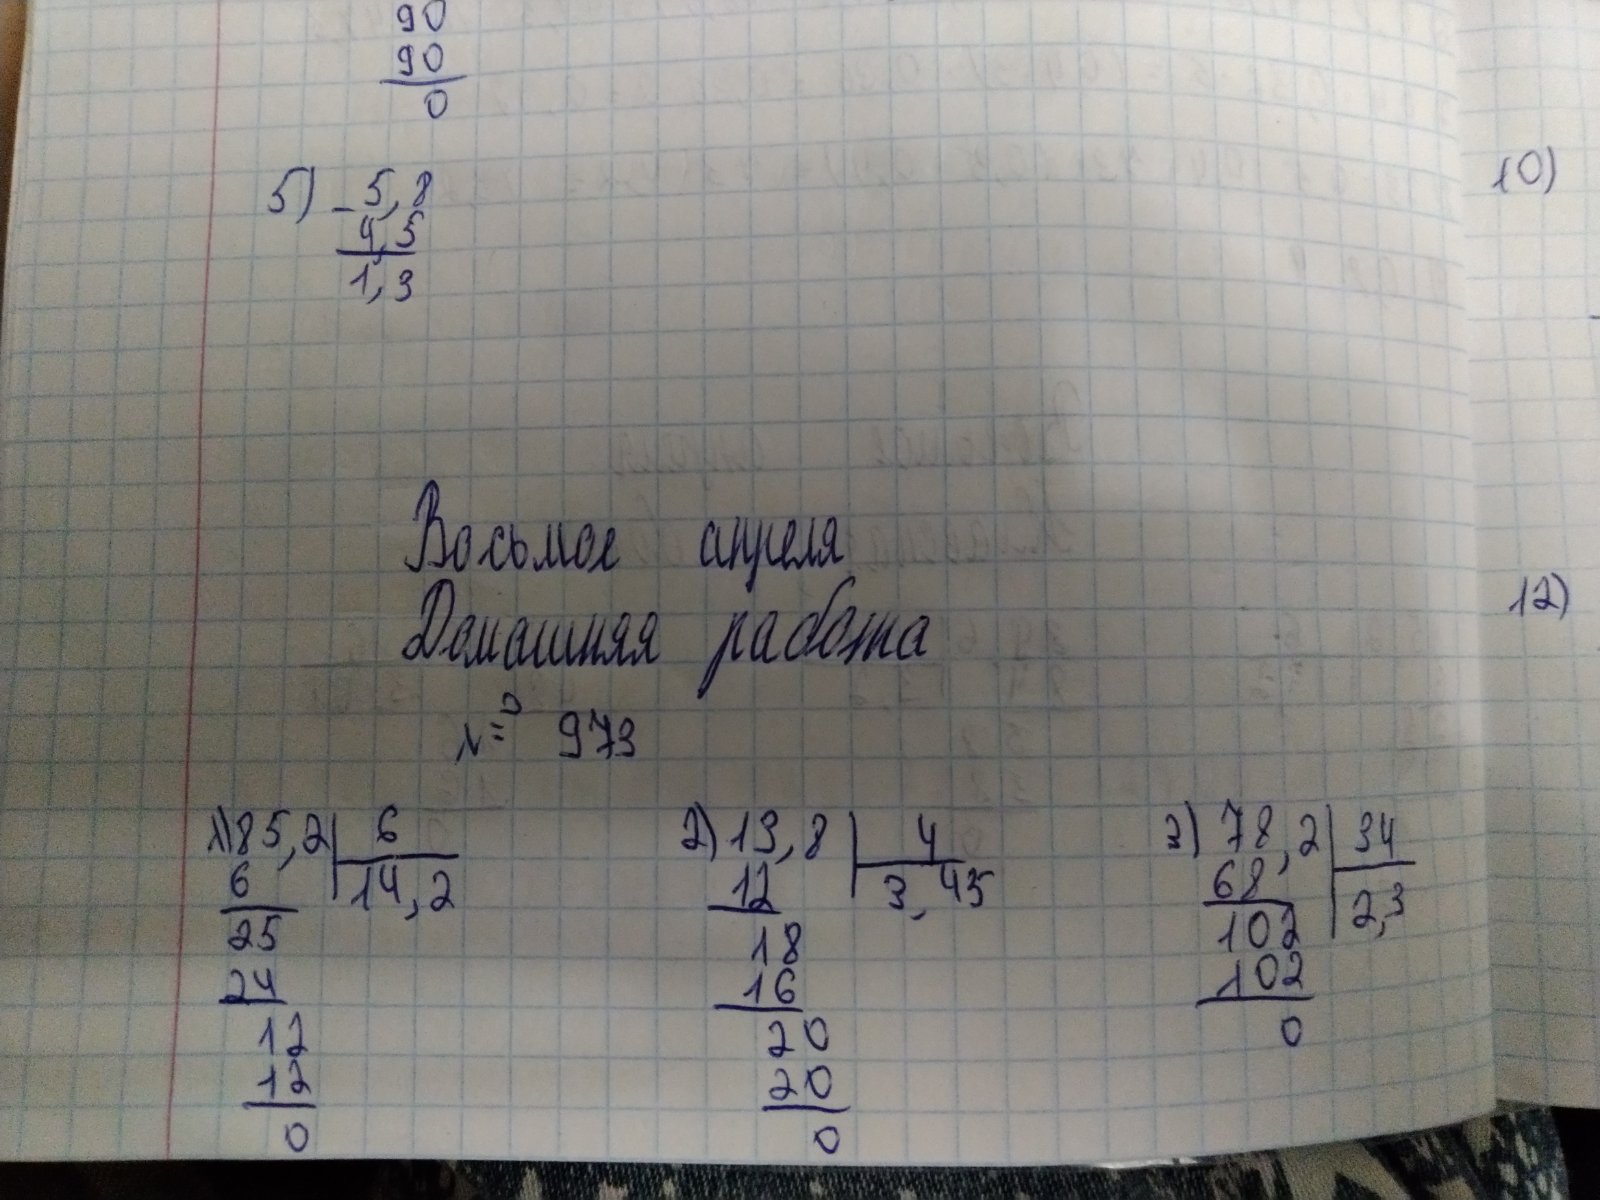 90
90
0
5) - 5,8
4,5
1,3
10)
Восьмое апреля
Домашняя работа
12)
№ 973
1) 85,2 6
6 14,2
25
24
12
12
0
2) 13,8 4
12 3,45
18
16
20
20
0
3) 78,2 34
68 2,3
102
102
0